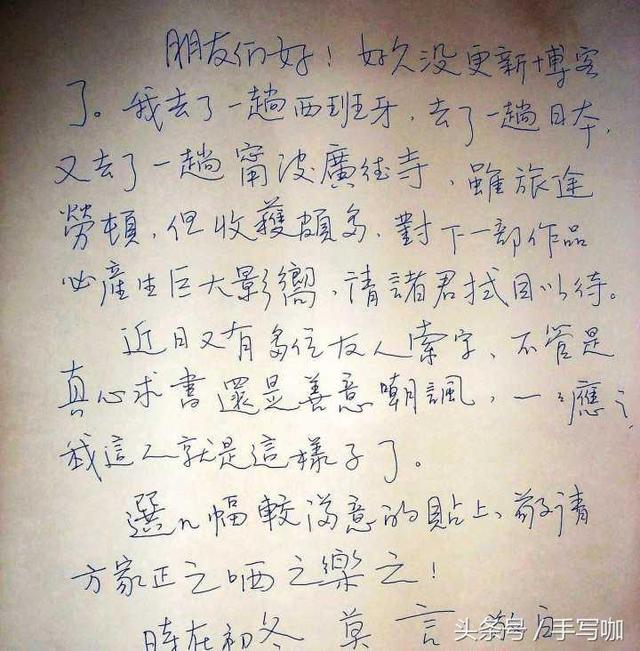 朋友们好！好久没更新博客
了。我去了一趟西班牙，去了一趟日本，
又去了一趟甯波廣德寺，雖旅途
勞頓，但收穫頗多，對下一部作品
必產生巨大影響，請諸君拭目以待。
近日又有多位友人索字，不管是
真心求書還是善意嘲諷，一一應之
我這人就是這樣子了。
選几幅較滿意的貼上，敬請
方家正之哂之樂之！
時在初冬 莫言
头条号 / 手写咖